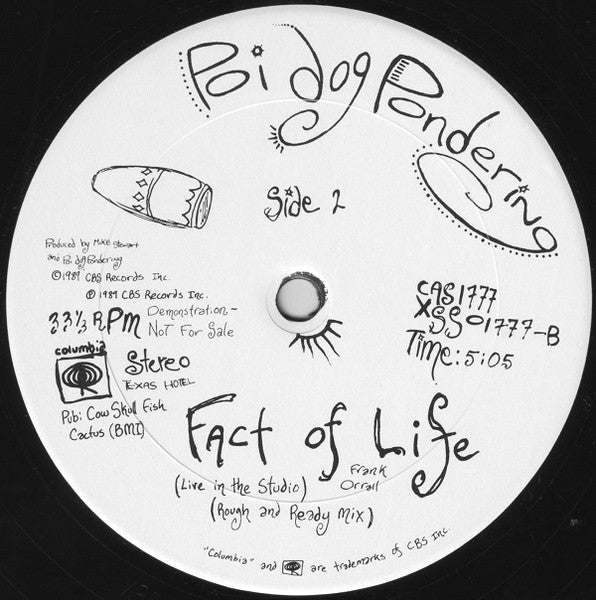 Poi Dog Pondering
Side 2
Produced by Mike Stewart
and Poi Dog Pondering
© 1989 CBS Records Inc.
℗ 1989 CBS Records Inc.
33 1/3 RPM
Demonstration-
Not For Sale
columbia
Stereo
TEXAS HOTEL
Pub: Cow Skull Fish
Cactus (BMI)
CAS1777
XSS01777-B
Time: 5:05
Fact of Life
(Live in the Studio)
Frank
Orrall
(Rough and Ready Mix)
"Columbia" and are trademarks of CBS Inc.